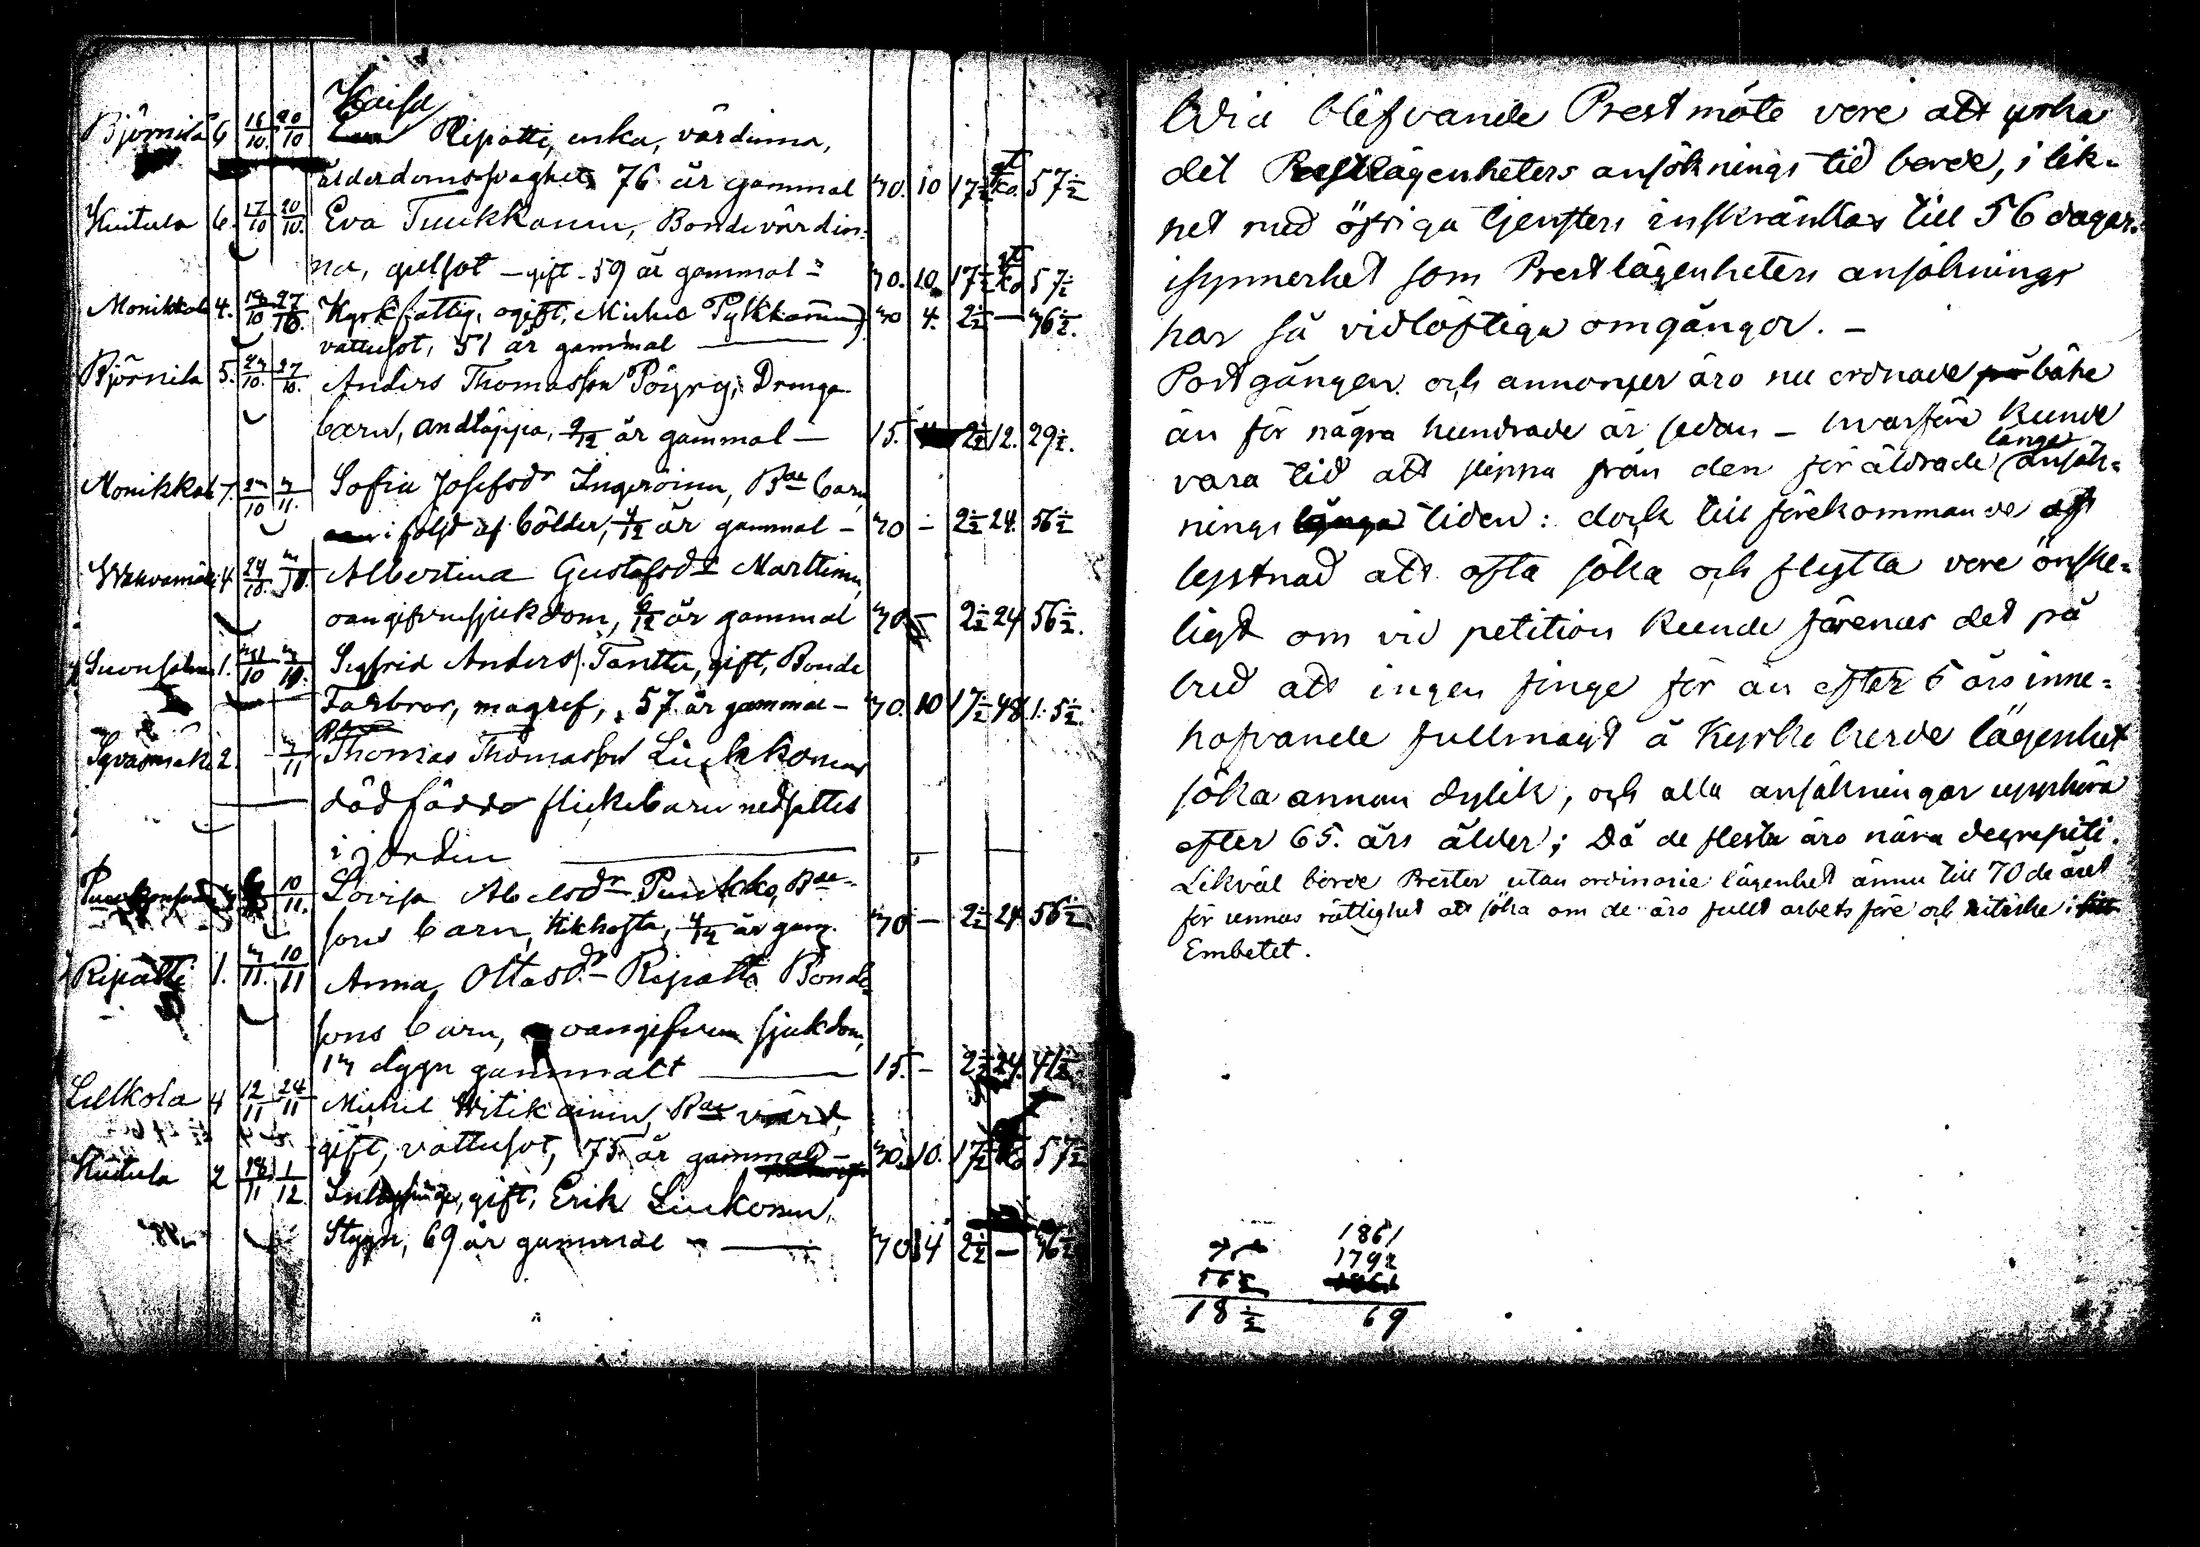 Kaisa
Björnilä 6 16/10. 20/10 Ripatti, enka, värdinna,
ålderdomssvaghet, 76 år gammal 30. 10 17½ Ko. 57½
Kuitula 6. 17/10 20/10. Eva Tuukkanen, Bondevärdin-
na, gulsot - gift - 59 år gammal - 30. 10 17½ Ko 57½
Monikkala 4. 19/10 27/10. Kyrkfattig, ogift, Michel Pylkkänen, 30 4. 2½ — 36½.
vattusot, 51 år gammal —
Björnilä 5. 23/10. 27/10. Anders Thomasson Pöyry, Drenga
barn, andtäppa, 9/12 år gammal — 15. 2½ 12. 29½.
Monikkala 7. 10 3/11. Sofia Josefsdr Ingeroinen, Bde barn,
i följd af bölder, 4/12 år gammal — 30 - 2½ 24. 56½
4 24/10. Albertina Gustafsdr Marttinen,
oangifven sjukdom, 6/12 år gammal 30. — 2½ 24 56½.
1. 31/10 Sigfrid Anders. Tanttu, gift, Bonde
Farbror, magref, 57 år gammal — 30. 10 17½ 48. 1. 5½.
2. 3/11 Thomas Thomasson Liukkonens
dödfödde flickebarn nedsattes
i jorden —
10/11. Lovisa Abelsdr Punkka, Bde-
sons barn, Kikhosta, 4/12 år gam. 30 — 2½ 24 56½
Ripatti 1. 3/11. 10/11 Anna Ottasdr Ripatti Bonde-
sons barn, oangifven sjukdom,
13 dygn gammalt — 15. — 2½ 24. 41½.
Lelkola 4 12/11 24/11 Michel Witikainen, Bde värd,
gift, vattusot, 75 år gammal — 30. 10. 17½ Ko 57½
Kuitula 2 18/11 1/12 Inhysing, gift, Erik Liukonen,
Stygn, 69 år gammal — 30 4 2½ — 36½
Wid blifvande Prestmöte vore att yrka
det Prestlägenheters ansöknings tid borde, i lik-
het med öfriga tjensters inskränktas till 56 dagar.
isynnerhet som Prestlägenheters ansöknings
har så vidlöftiga omgångar. —
Postgången och annonser äro nu ordnade på bätre
än för några hundrade år sedan — hvarföre kunde
långa
vara tid att slippa från den föråldrade ansök-
nings långa tiden: dock till förekommande af
lystnad att ofta söka och flytta vore önske-
ligt om vid petition kunde förenas det på
bud att ingen finge för än efter 5 års inne-
hafvande fullmagt å Kyrkoherde lägenhet
söka annan dylik, och alla ansökningar upphöra
efter 65. års ålder; Då de flesta äro nära decrepiti.
Likväl borde Prester utan ordinarie lägenhet ännu till 70de året
för unnas rättighet att söka om de äro fullt arbets före och nitiske i sitt
Embetet.
1861
1792
56½
18½ 69